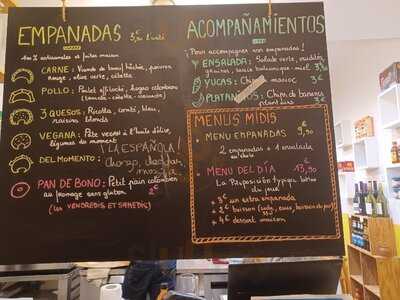 EMPANADAS 3,50 l'unité
100% artisanales et faites maison
CARNE : Viande de bœuf hachée, poivron
rouge, olive verte, cébette
POLLO : Poulet effiloché, hogao colombien
(tomate - cébette - coriandre)
3 QUESOS : Ricotta, comté, bleu,
raisins blonds
VEGANA : Pâte vegan à l'huile d'olive,
légumes du moment
DEL MOMENTO :
¡LA ESPAÑOLA!
PAN DE BONO : Petit pain colombien
au fromage sans gluten 2€
(LES VENDREDIS ET SAMEDIS)
ACOMPAÑAMIENTOS
Pour accompagner vos empanadas !
ENSALADA : Salade verte,
graines, sauce balsamique - miel 3€
YUCAS : Chips manioc 3€
PLATANITOS : Chips de bananes
plantains 3€
MENUS MIDIS
MENU EMPANADAS 9,50
2 empanadas + 1 ensalada
au choix
MENU DEL DÍA 13,50
La proposition typique latino
du jour
+ 3€ un extra empanada
+ 2€ boisson
+ 4€ dessert maison